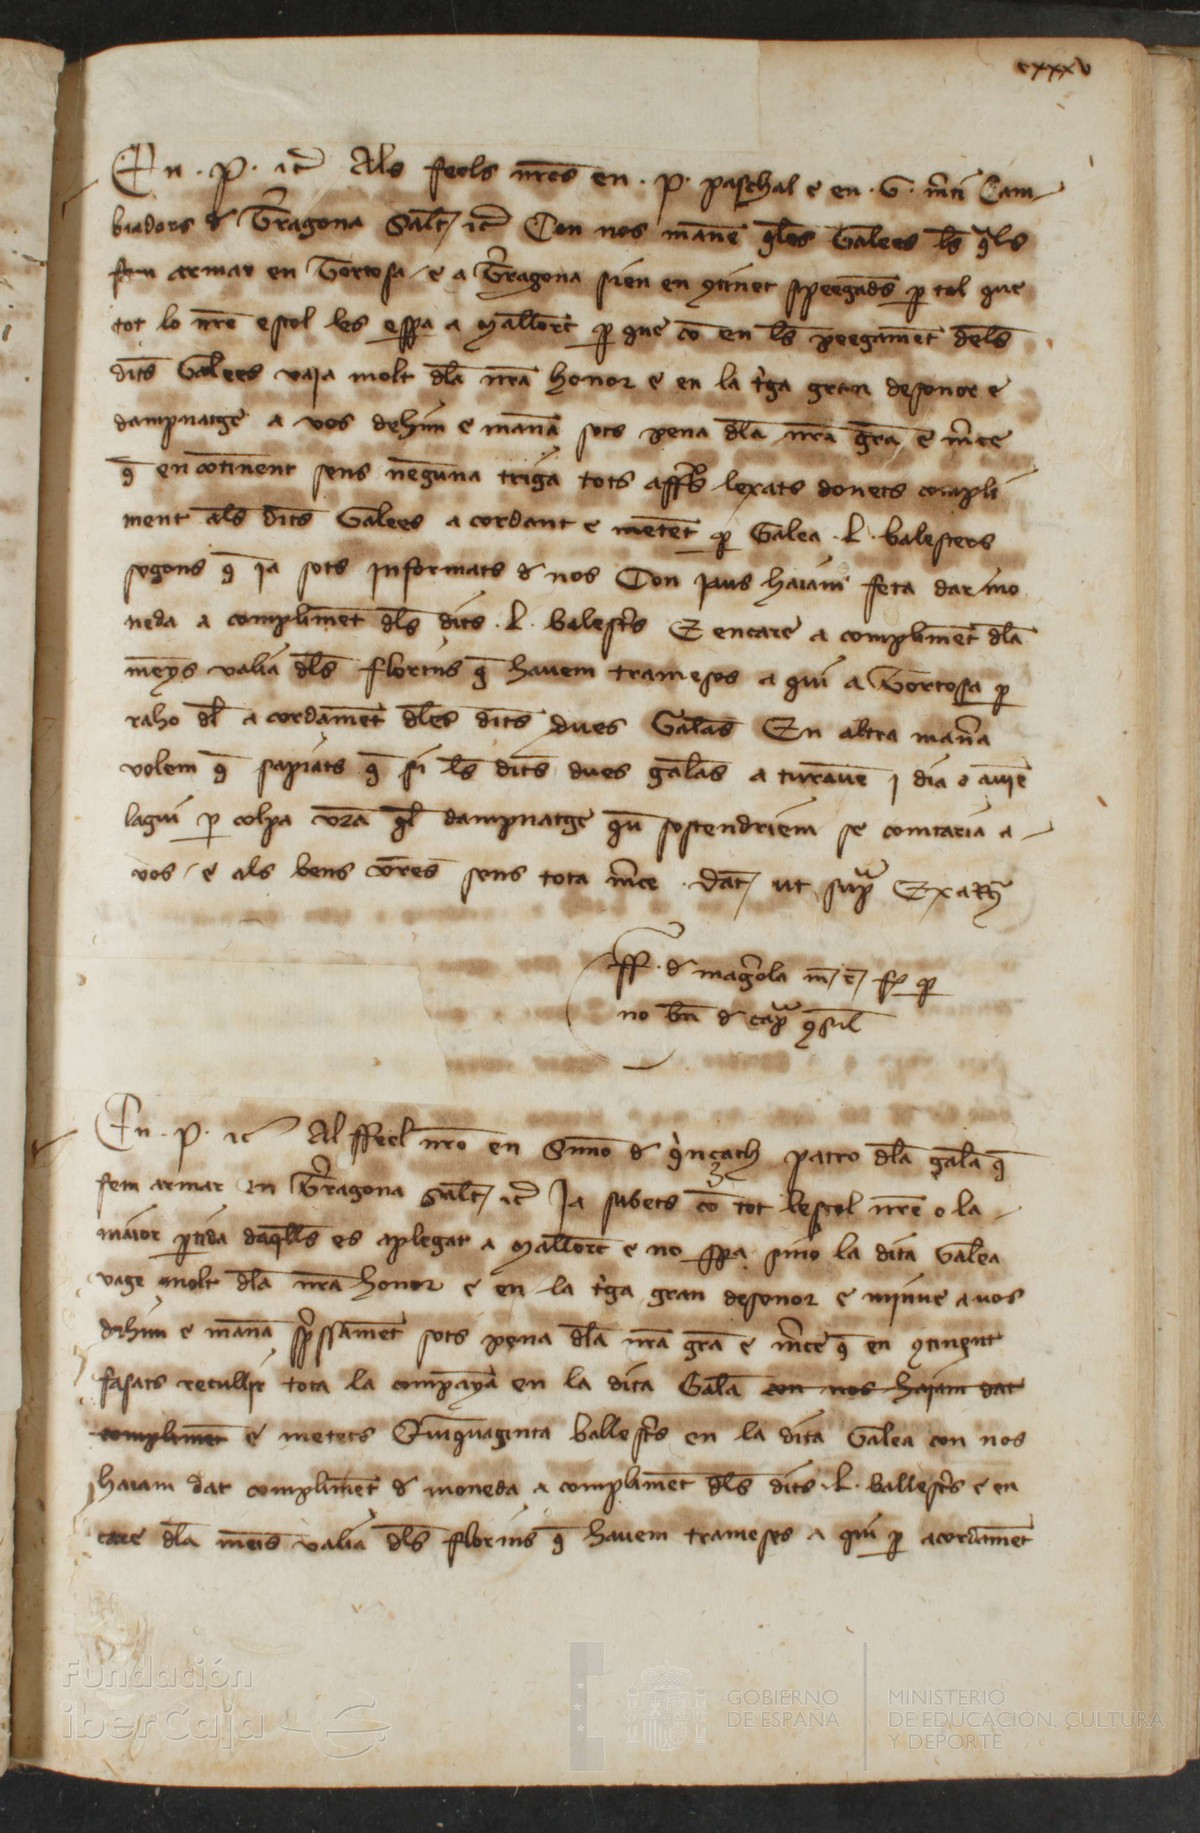 cxxxv
En . P . etc Als feels nres en . P . paschal e en . G . mti Cam
biadors d Tragona Salt etc Con nos manem qles Galees ls qls
fem armar en Tortosa e a Tragona sien en qtinet speegads p tal que
tot lo nre estol les espa a Mallorc p que co en ls peegamet dels
dits Galees vaja molt dla nra honor e en la tiga gran desonor e
dampnatge a vos dehim e manam sots pena dla nra gra e mce
q en continent sens neguna triga tots affrs lexats donets compli
ment als dits Galees acordant e metent p Galea . L . balesters
segons q ja sots informats d nos Con jaus haiam feta dar mo
neda a compliment dls dits . L . balests E encare a compliment dla
meys valia dls florins q havem trameses aqui a Tortosa p
raho dl acordament dles dits dues Galas En altra mana
volem q sapiats q si ls dits dues galas aturaven j dia o avie
lagui p colpa vra ql dampnatge qn sostendriem se comtaria a
vos e als bens vres sens tota mce . Dat ut sup
ff . d magola m
no bn d cap qsil
En . P . etc Al ffeel nro en Simo d qncach patro dla gala q
fem armar en Tragona Salt etc Ja sabets co tot lestol nre o la
maior ptida daqlls es aplegat a Mallorc e no spa sino la dita Galea
vage molt dla nra honor e en la tiga gran desonor e minue a vos
dehim e manam spssament sots pena dla nra gra e mce q en qtinent
fasats recullir tota la companya en la dita Gala con nos haiam dat
compliment e metets Quinquaginta ballests en la dita Galea con nos
haiam dat compliment d moneda a compliment dls dits . L . ballests e en
care dla meis valia dls florins q havem trameses aqui p acordament
Fundación
iberCaja
GOBIERNO
DE ESPAÑA
MINISTERIO
DE EDUCACIÓN, CULTURA
Y DEPORTE